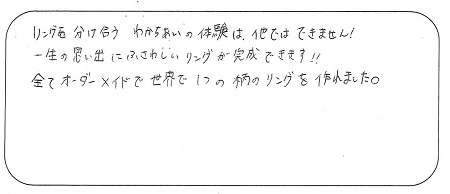 リングを分け合う わかちあいの体験は、他ではできません!
一生の思い出にふさわしいリングが完成できます!!
全てオーダーメイドで世界で1つの柄のリングを作れました。